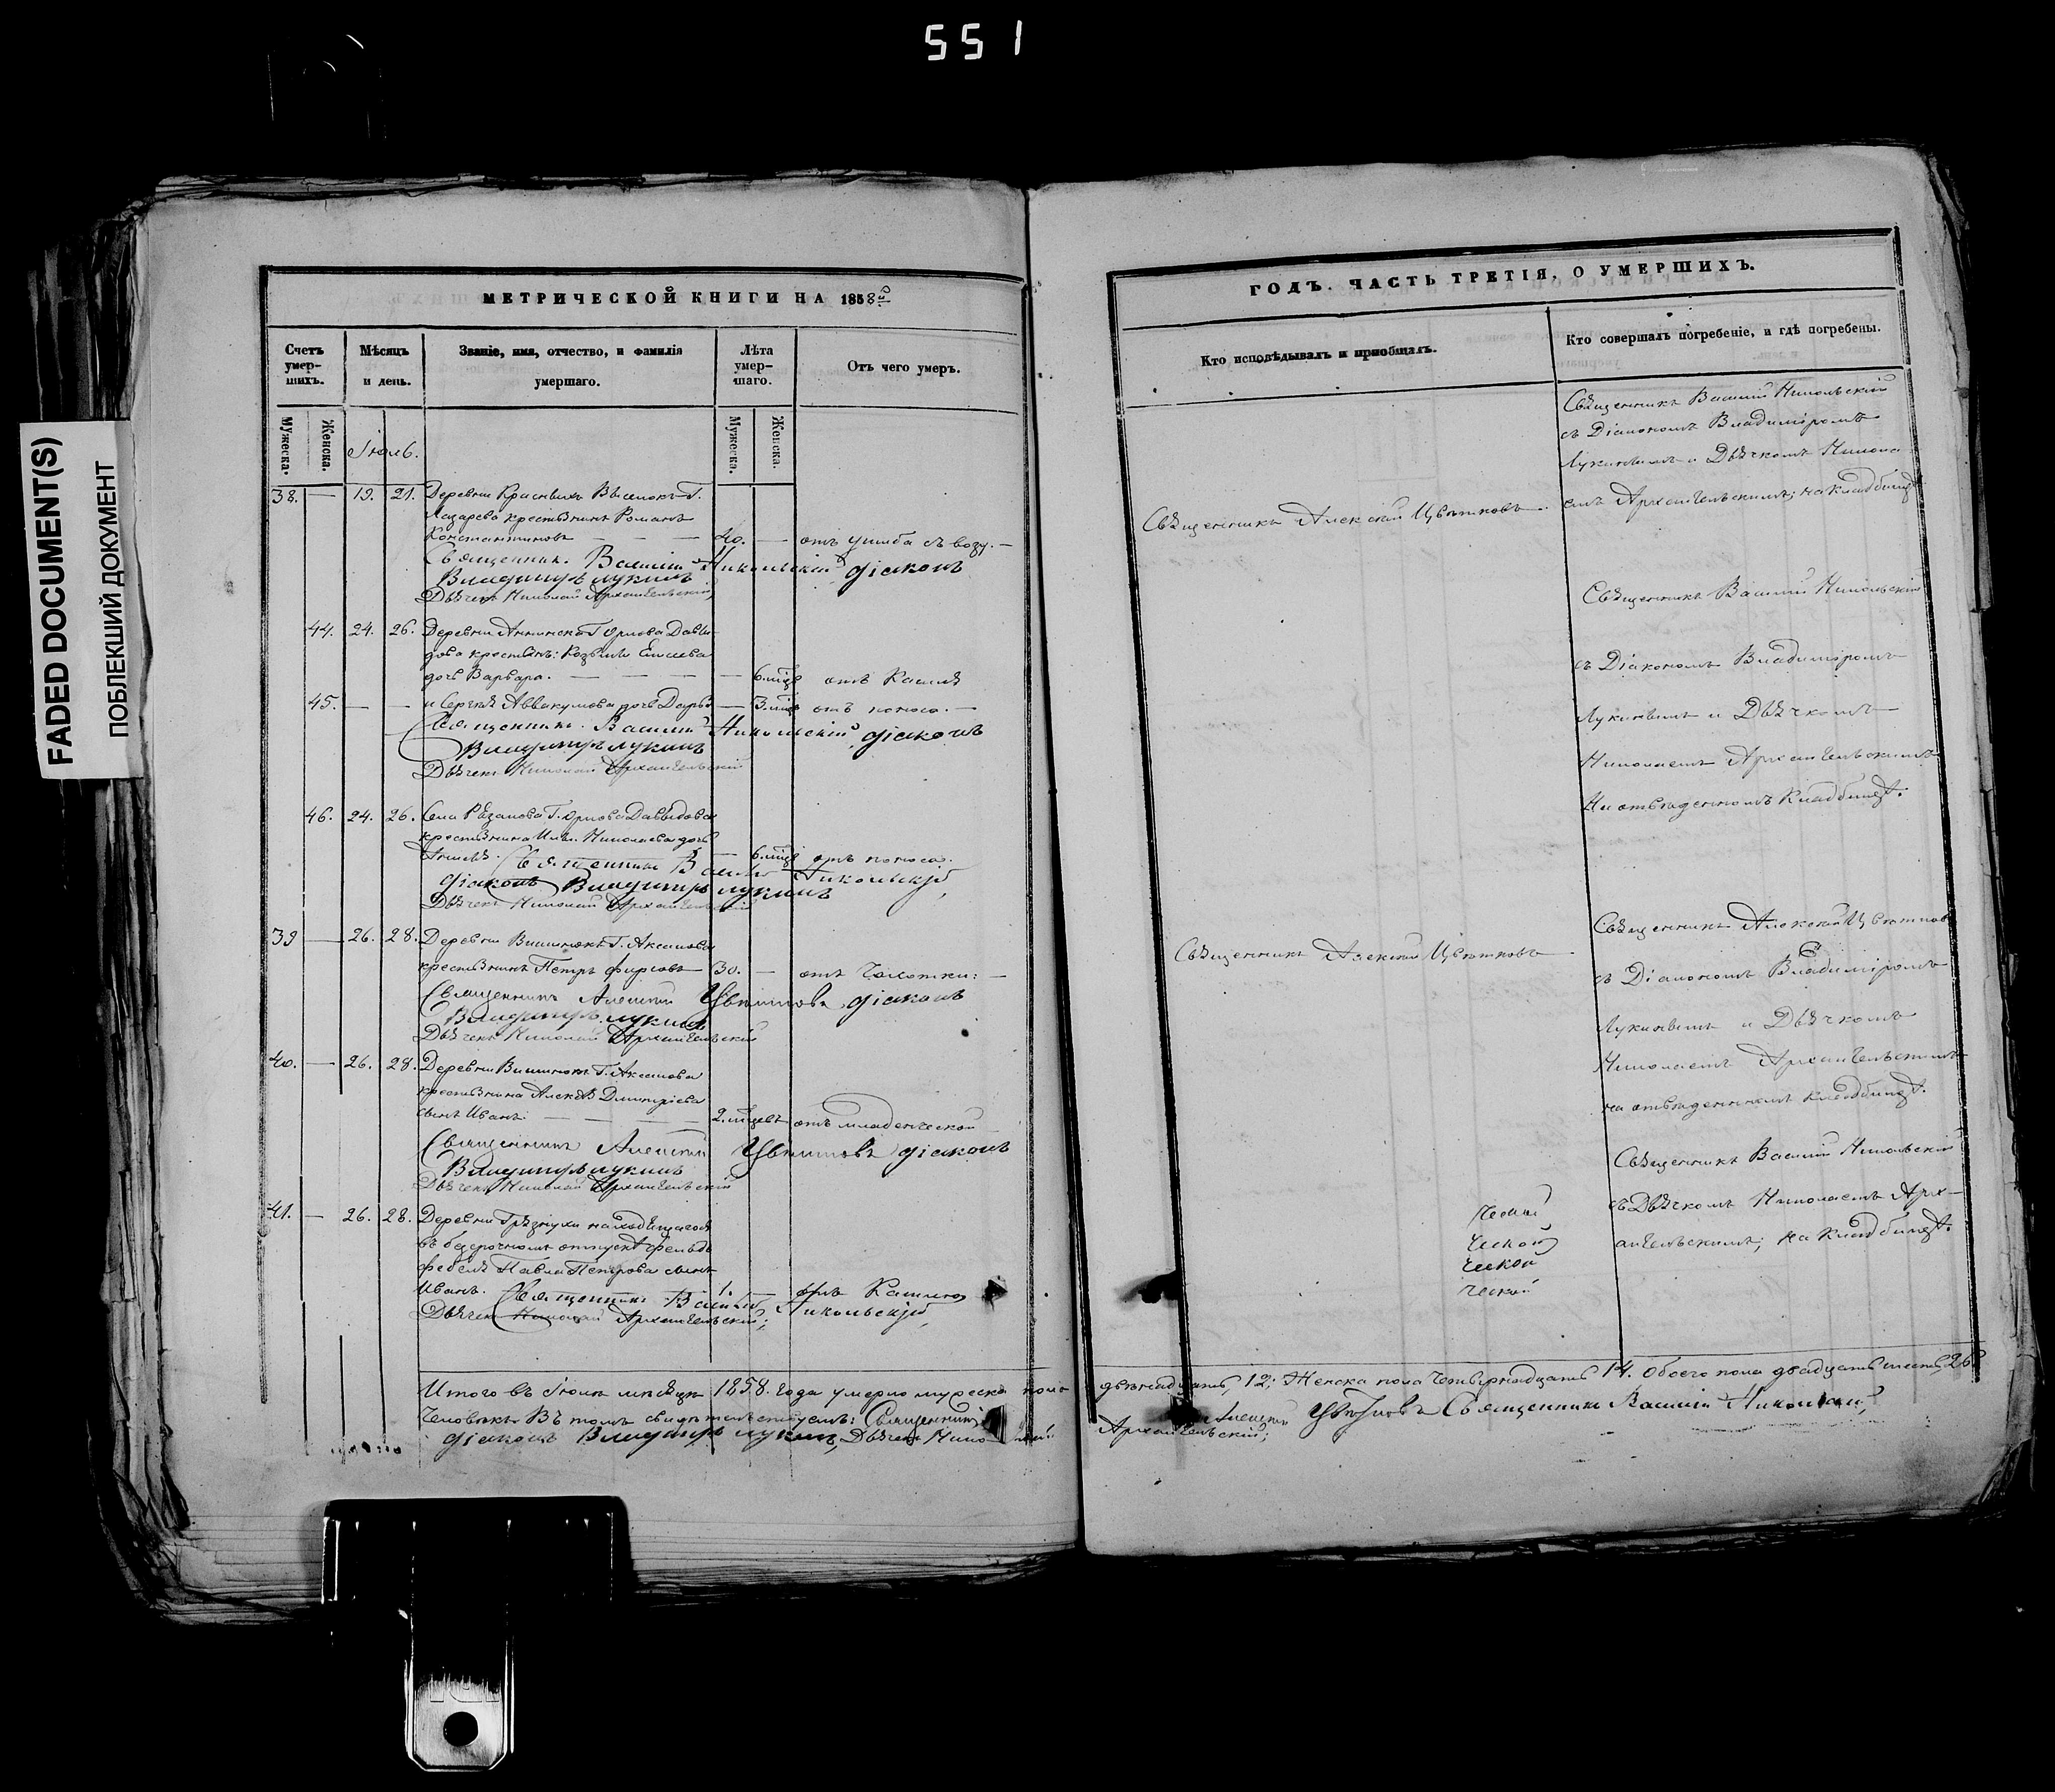 551
FADED DOCUMENT(S)
ПОБЛЕКШИЙ ДОКУМЕНТ
МЕТРИЧЕСКОЙ КНИГИ НА 1858й
Счетъ умер-шихъ.
Мѣсяцъ и день.
Званіе, имя, отчество, и фамилія умершаго.
Лѣта умер-шаго.
Отъ чего умеръ.
Мужеска.
Женска.
Іюль.
Мужеска.
Женска.
38. — 19. 21. Деревни Выселокъ Г.
Лазарева крестьянинъ Романъ
Константиновъ — — — 40. — отъ ушиба съ возу. —
Священникъ Василій Никольскій діаконъ
Владиміръ Лукинъ
Дьячекъ Николай Архангельскій,
44. 24. 26. Деревни Аннинска Г. Орлова Давы-
дова крестьян: Козьмы Елисеева
дочь Варвара. — — — — 6. мцв отъ Кашля
45. — — и Сергѣя Аввакумова дочь Дарья — 3. мцв отъ поноса. —
Священникъ Василій Никольскій діаконъ
Владиміръ Лукинъ
Дьячекъ Николай Архангельскій
46. 24. 26. Села Рѣзанова Г. Орлова Давыдова
крестьянина Николаева дочь
— 6. мцв отъ поноса.
Священникъ Василій Никольскій
діаконъ Владиміръ Лукинъ
Дьячекъ Николай Архангельскій
39 — 26. 28. Деревни Вишнякъ Г. Аксакова
крестьянинъ Петръ Фирсовъ 30. — отъ Чахотки: —
Священникъ Алексій Цвѣтковъ діаконъ
Владиміръ Лукинъ
Дьячекъ Николай Архангельскій
40. — 26. 28. Деревни Вишнякъ Г. Аксакова
крестьянина Алексѣя Дмитріева
сынъ Иванъ — — — 2. мцевъ отъ младенческой
Священникъ Алексій Цвѣтковъ діаконъ
Владиміръ Лукинъ
Дьячекъ Николай Архангельскій
41. — 26. 28. Деревни Грязнухи находящагося
въ безсрочномъ отпускѣ фельд-
фебеля Павла Петрова сынъ
Иванъ. Священникъ Василій 1. — отъ Кашлю
Никольскій,
Дьячекъ Николай Архангельскій;
Итого въ Іюлѣ мѣсяцѣ 1858. года умерло мужеска пола
Человѣкъ. Въ томъ свидѣтельствуемъ: Священникъ
діаконъ Владиміръ Лукинъ, Дьячекъ Николай
ГОДЪ. ЧАСТЬ ТРЕТІЯ, О УМЕРШИХЪ.
Кто исповѣдывалъ и пріобщалъ.
Кто совершалъ погребеніе, и гдѣ погребены.
Священникъ Василій Никольскій
съ Діакономъ Владиміромъ
Лукинымъ и Дьячкомъ Никола
Священникъ Алексій Цвѣтковъ. емъ Архангельскимъ; на кладбищѣ
Священникъ Василій Никольскій
съ Діакономъ Владиміромъ
Лукинымъ и Дьячкомъ
Николаемъ Архангельскимъ
На отведенномъ Кладбищѣ.
Священникъ Алексій Цвѣтковъ
Священникъ Алексій Цвѣтковъ
съ Діакономъ Владиміромъ
Лукинымъ и Дьячкомъ
Николаемъ Архангельскимъ
на отведенномъ кладбищѣ.
Священникъ Василій Никольскій
съ Дьячкомъ Николаемъ Арх-
ангельскимъ; на Кладбищѣ.
ческой
ческой
ческой
двѣнадцать, 12; Женска пола Четырнадцать 14. Обоего пола двадцать шесть, 26
Алексій Цвѣтковъ Священникъ Василій Никольскій,
Архангельскій;